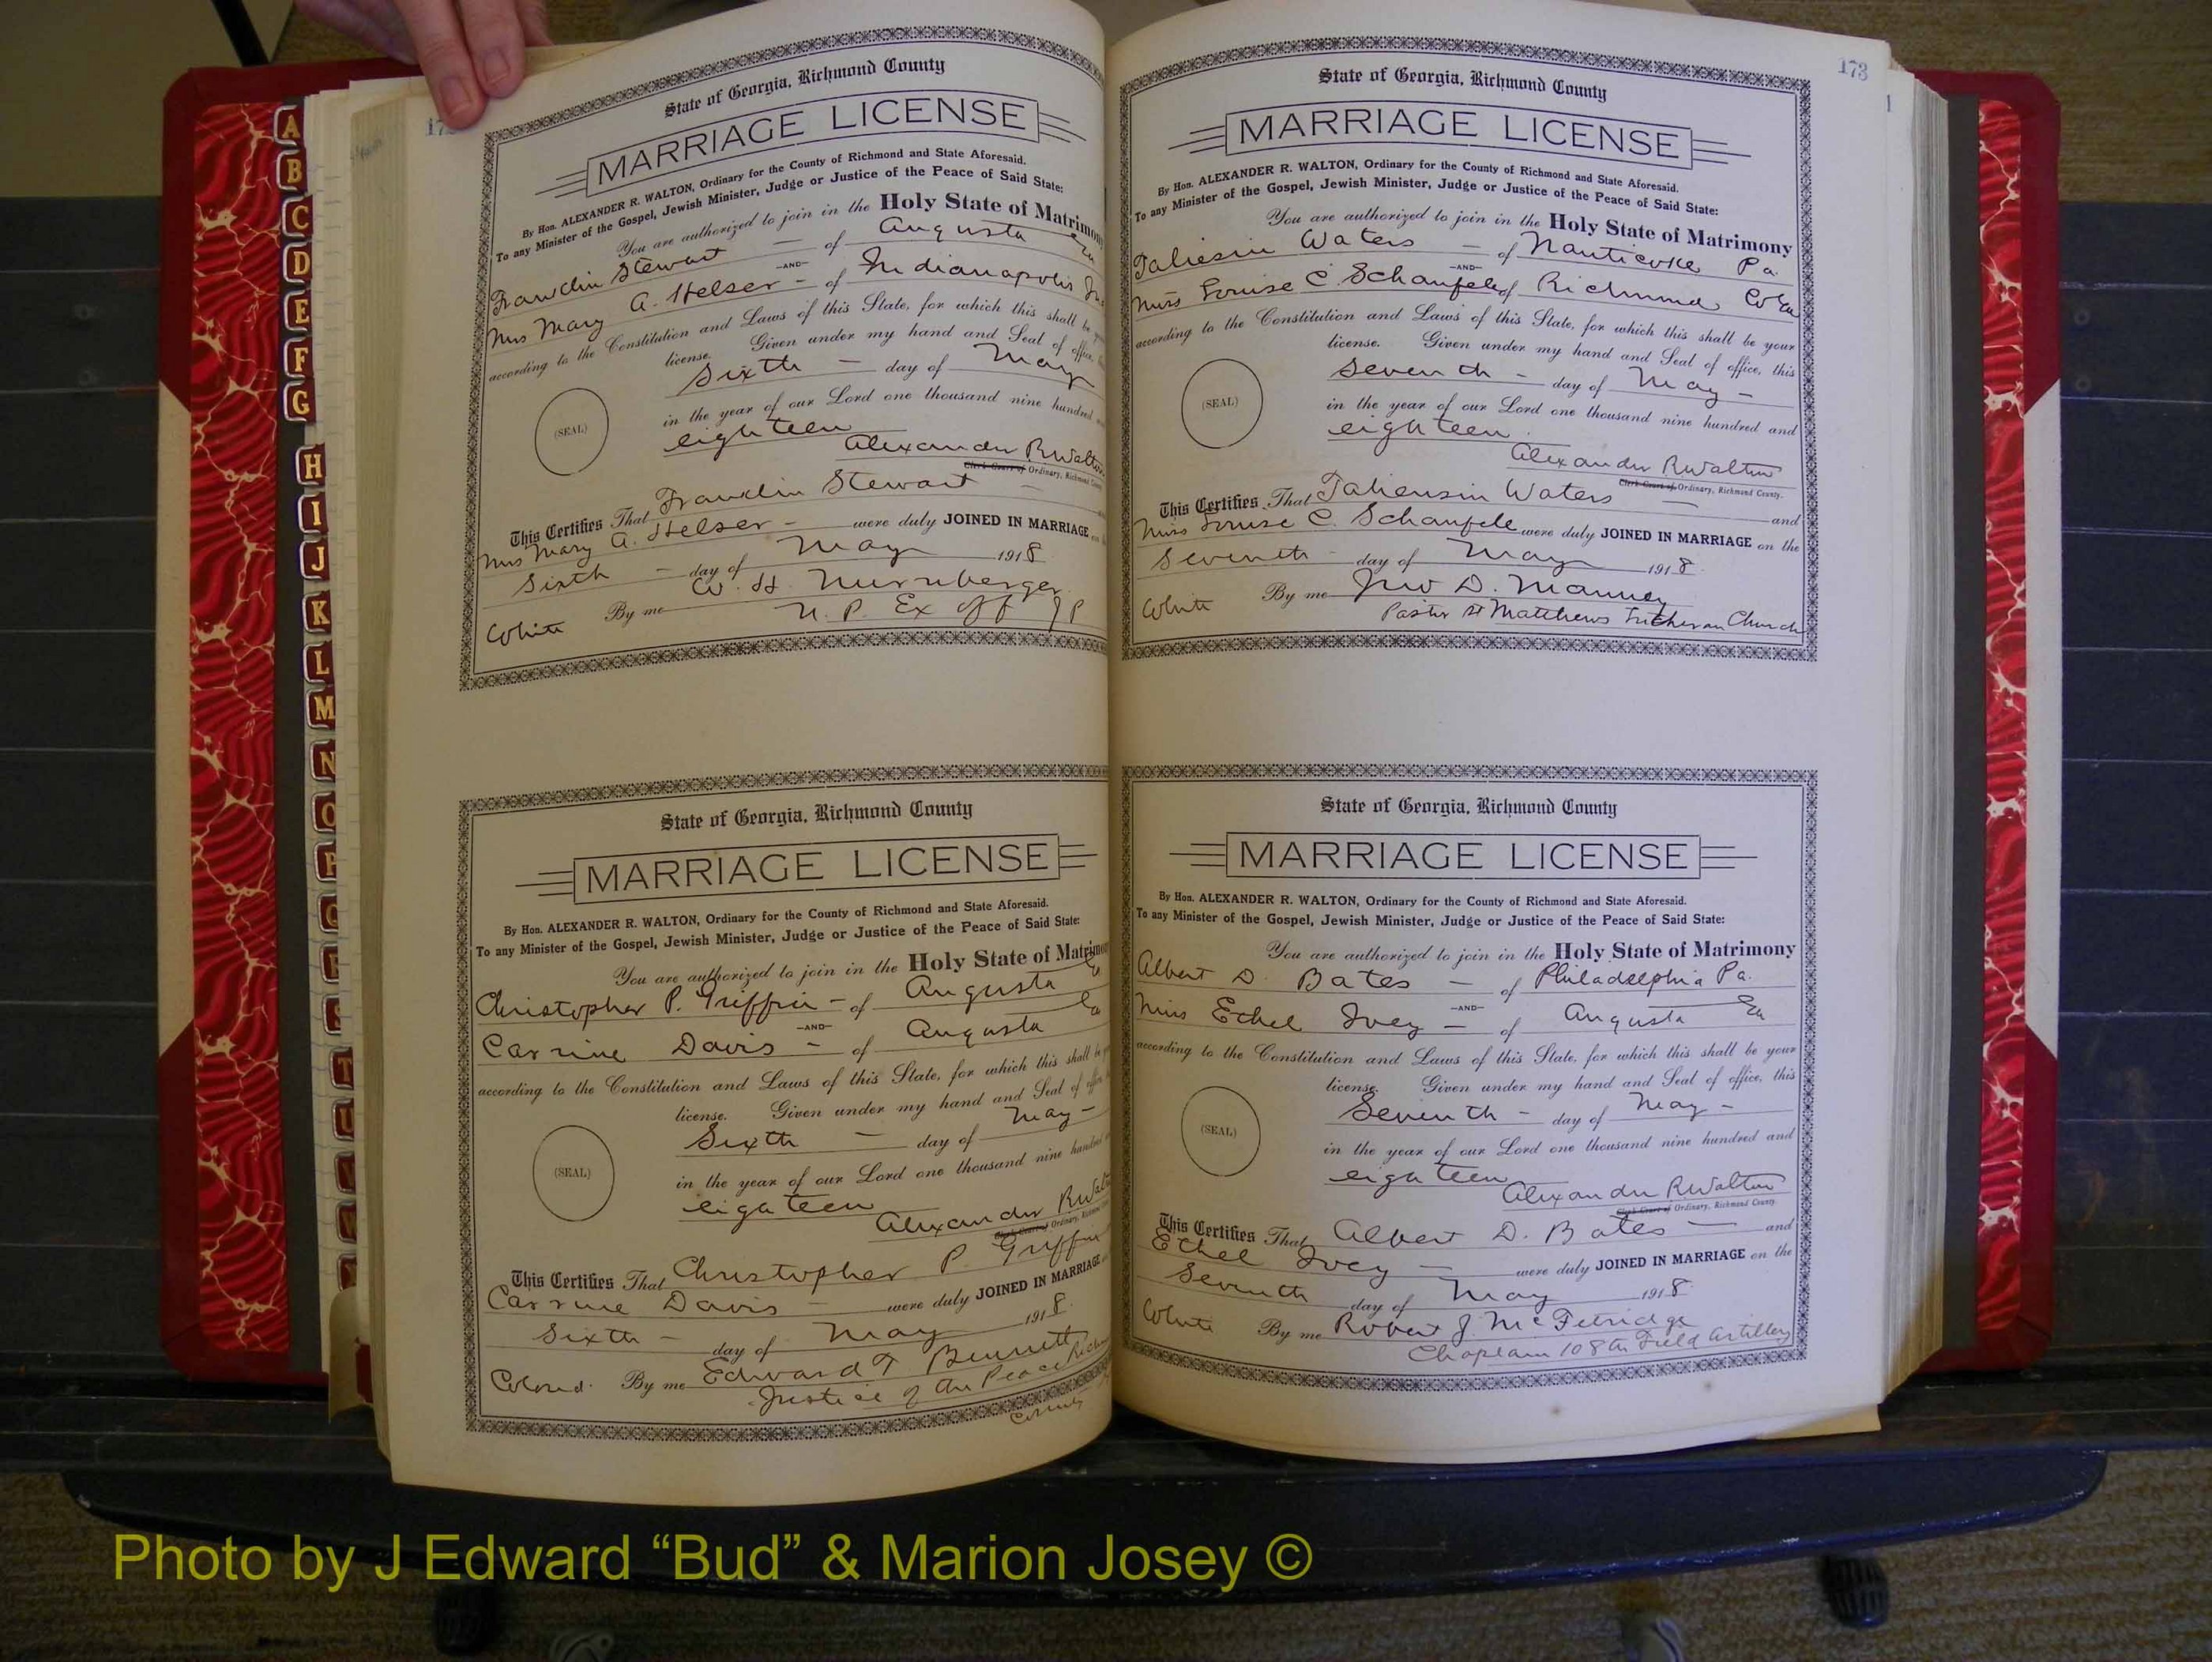 A
B
C
D
E
F
G
H
I
J
K
L
M
N
O
P
T
U
State of Georgia, Richmond County
MARRIAGE LICENSE
By Hon. ALEXANDER R. WALTON, Ordinary for the County of Richmond and State Aforesaid.
To any Minister of the Gospel, Jewish Minister, Judge or Justice of the Peace of Said State:
You are authorized to join in the Holy State of Matrimony
Franclin Stewart — of Augusta Ga
—AND—
Mrs Mary A. Helser - of Indianapolis
according to the Constitution and Laws of this State, for which this shall be
license. Given under my hand and Seal of office,
Sixth — day of May
in the year of our Lord one thousand nine hundred
eighteen
(SEAL)
Alexander R Walton
Clerk Court of Ordinary, Richmond County
This Certifies That Franclin Stewart —
Mrs Mary A. Helser - were duly JOINED IN MARRIAGE
Sixth — day of May 1918
White By me W. H. Nurnberger
N. P. Ex off J P
State of Georgia, Richmond County
MARRIAGE LICENSE
By Hon. ALEXANDER R. WALTON, Ordinary for the County of Richmond and State Aforesaid.
To any Minister of the Gospel, Jewish Minister, Judge or Justice of the Peace of Said State:
You are authorized to join in the Holy State of Matrimony
Christopher P. Griffin - of Augusta Ga
—AND—
Carrine Davis - of Augusta Ga
according to the Constitution and Laws of this State, for which this shall be
license. Given under my hand and Seal of office
Sixth — day of May -
in the year of our Lord one thousand nine hundred
eighteen
(SEAL)
Alexander R Walton
Clerk Court of Ordinary, Richmond
This Certifies That Christopher P. Griffin
Carrine Davis - were duly JOINED IN MARRIAGE
Sixth - day of May 1918.
Colored. By me Edward T Bennett
Justice of the Peace Richmond
County
173
State of Georgia, Richmond County
MARRIAGE LICENSE
By Hon. ALEXANDER R. WALTON, Ordinary for the County of Richmond and State Aforesaid.
To any Minister of the Gospel, Jewish Minister, Judge or Justice of the Peace of Said State:
You are authorized to join in the Holy State of Matrimony
Taliesin Waters — of Nanticoke Pa.
—AND—
Miss Louise C. Schaufele of Richmond Co Ga
according to the Constitution and Laws of this State, for which this shall be your
license. Given under my hand and Seal of office, this
Seventh - day of May -
in the year of our Lord one thousand nine hundred and
eighteen.
(SEAL)
Alexander R Walton
Clerk Court of Ordinary, Richmond County.
This Certifies That Taliensin Waters — and
Miss Louise C. Schaufele were duly JOINED IN MARRIAGE on the
Seventh - day of May 1918.
White By me Jno D. Mauney
Pastor St Matthews Lutheran Church
State of Georgia, Richmond County
MARRIAGE LICENSE
By Hon. ALEXANDER R. WALTON, Ordinary for the County of Richmond and State Aforesaid.
To any Minister of the Gospel, Jewish Minister, Judge or Justice of the Peace of Said State:
You are authorized to join in the Holy State of Matrimony
Albert D. Bates — of Philadelphia Pa.
—AND—
Miss Ethel Ivey — of Augusta Ga
according to the Constitution and Laws of this State, for which this shall be your
license. Given under my hand and Seal of office, this
Seventh - day of May -
in the year of our Lord one thousand nine hundred and
eighteen
(SEAL)
Alexander R Walton
Clerk Court of Ordinary, Richmond County.
This Certifies That Albert D. Bates — and
Ethel Ivey — were duly JOINED IN MARRIAGE on the
Seventh day of May 1918.
White By me Robert J. McFetridge
Chaplain 108th Field Artillery
Photo by J Edward “Bud” & Marion Josey ©